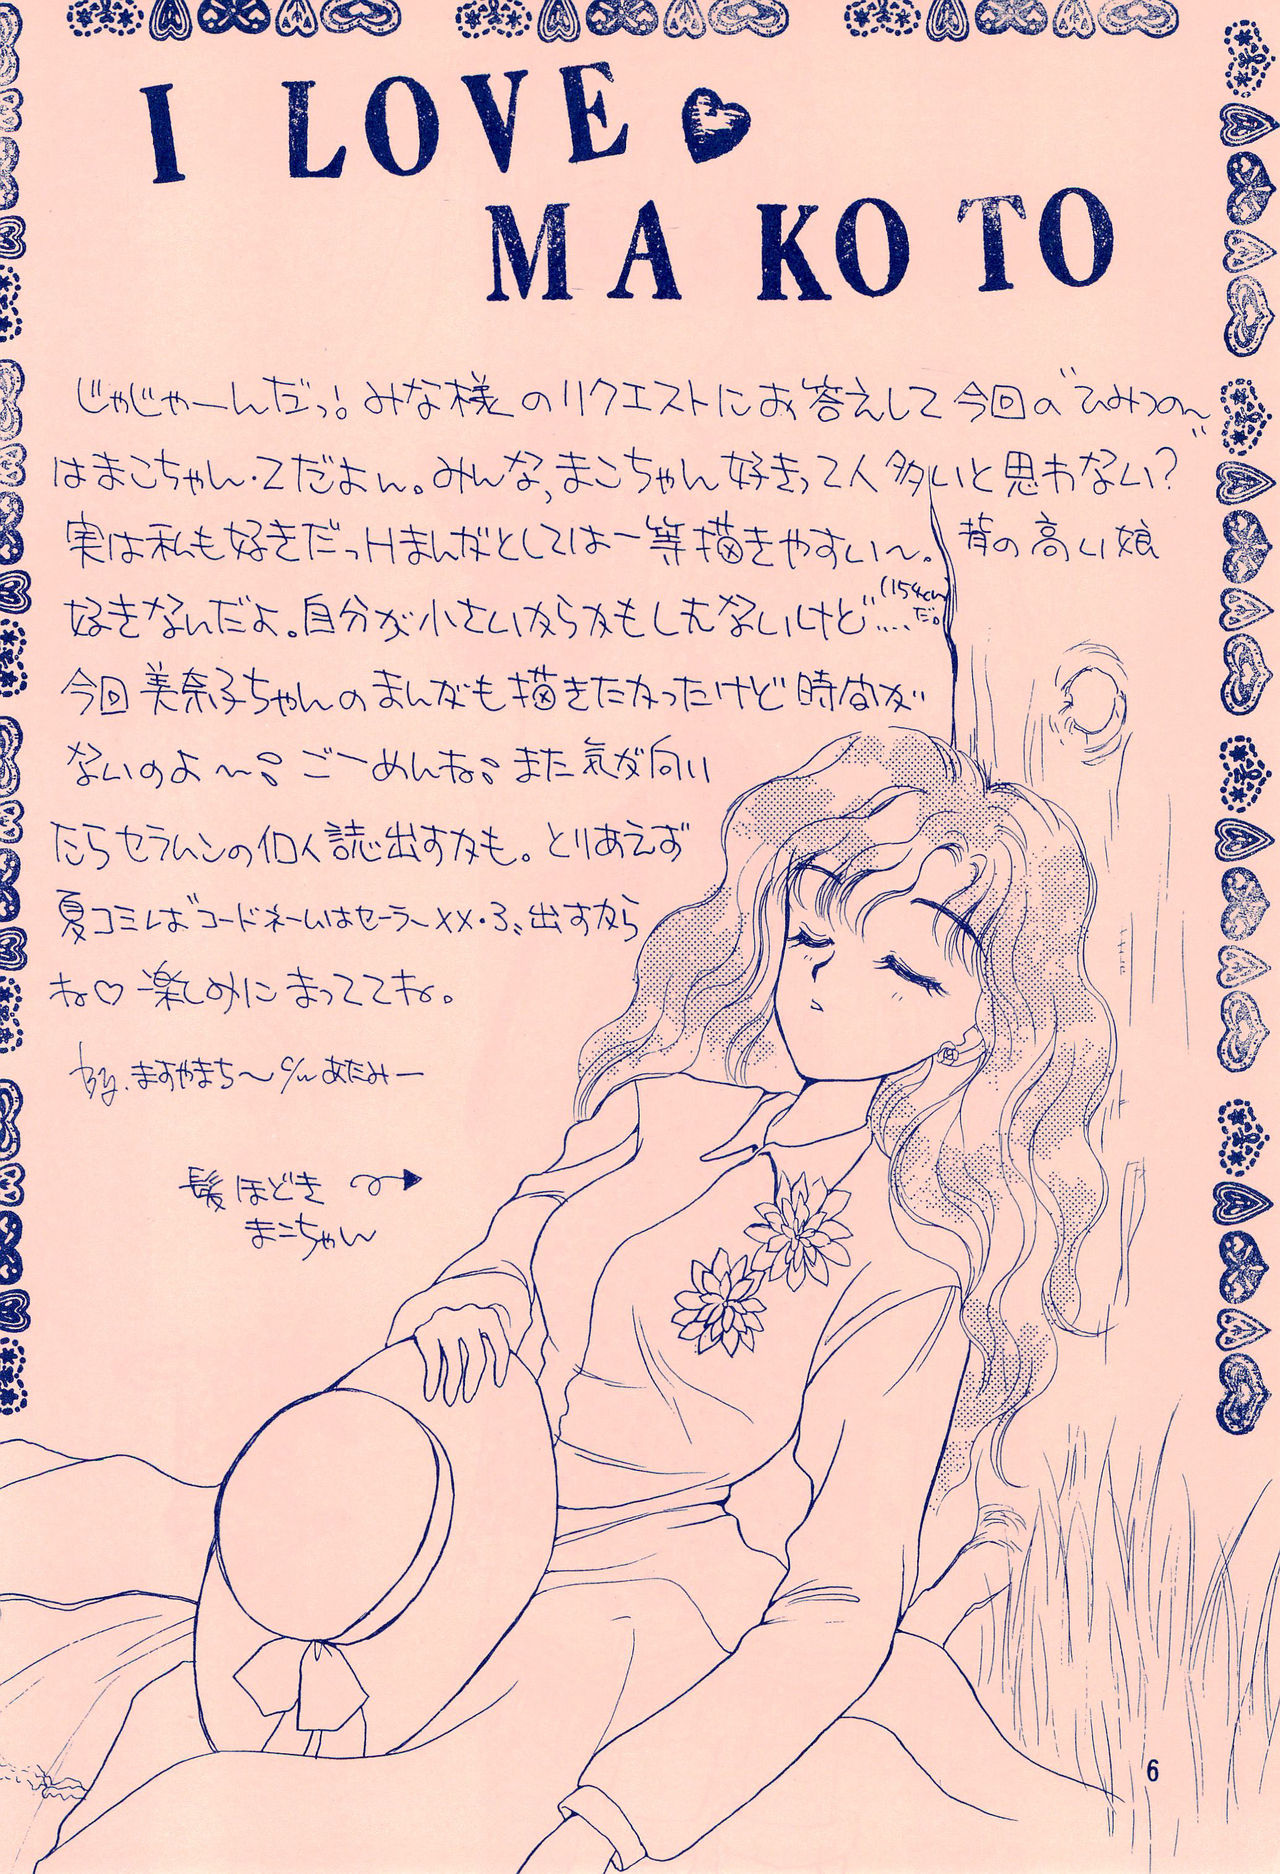 I LOVE
MAKOTO
じゃじゃーんだっ!みな様のリクエストにお答えして今回の"ひみつの〜"
はまこちゃん・Zだよん。みんな、まこちゃん好きって人多いと思わない?
実は私も好きだっHまんがとしては一等描きやすい〜。背の高い娘
好きなんだよ。自分が小さいからかもしんないけど…‥(154cmだ。)
今回美奈子ちゃんのまんがも描きたかったけど時間が
ないのよ〜。ごーめんね。また気が向い
たらセラムンの個人誌出すかも。とりあえず
夏コミには"コードネームはセーラー××・3"出すから
ね♡楽しみにまっててね。
by.ますやまち〜 あたみー
髪ほどき
まこちゃん
6